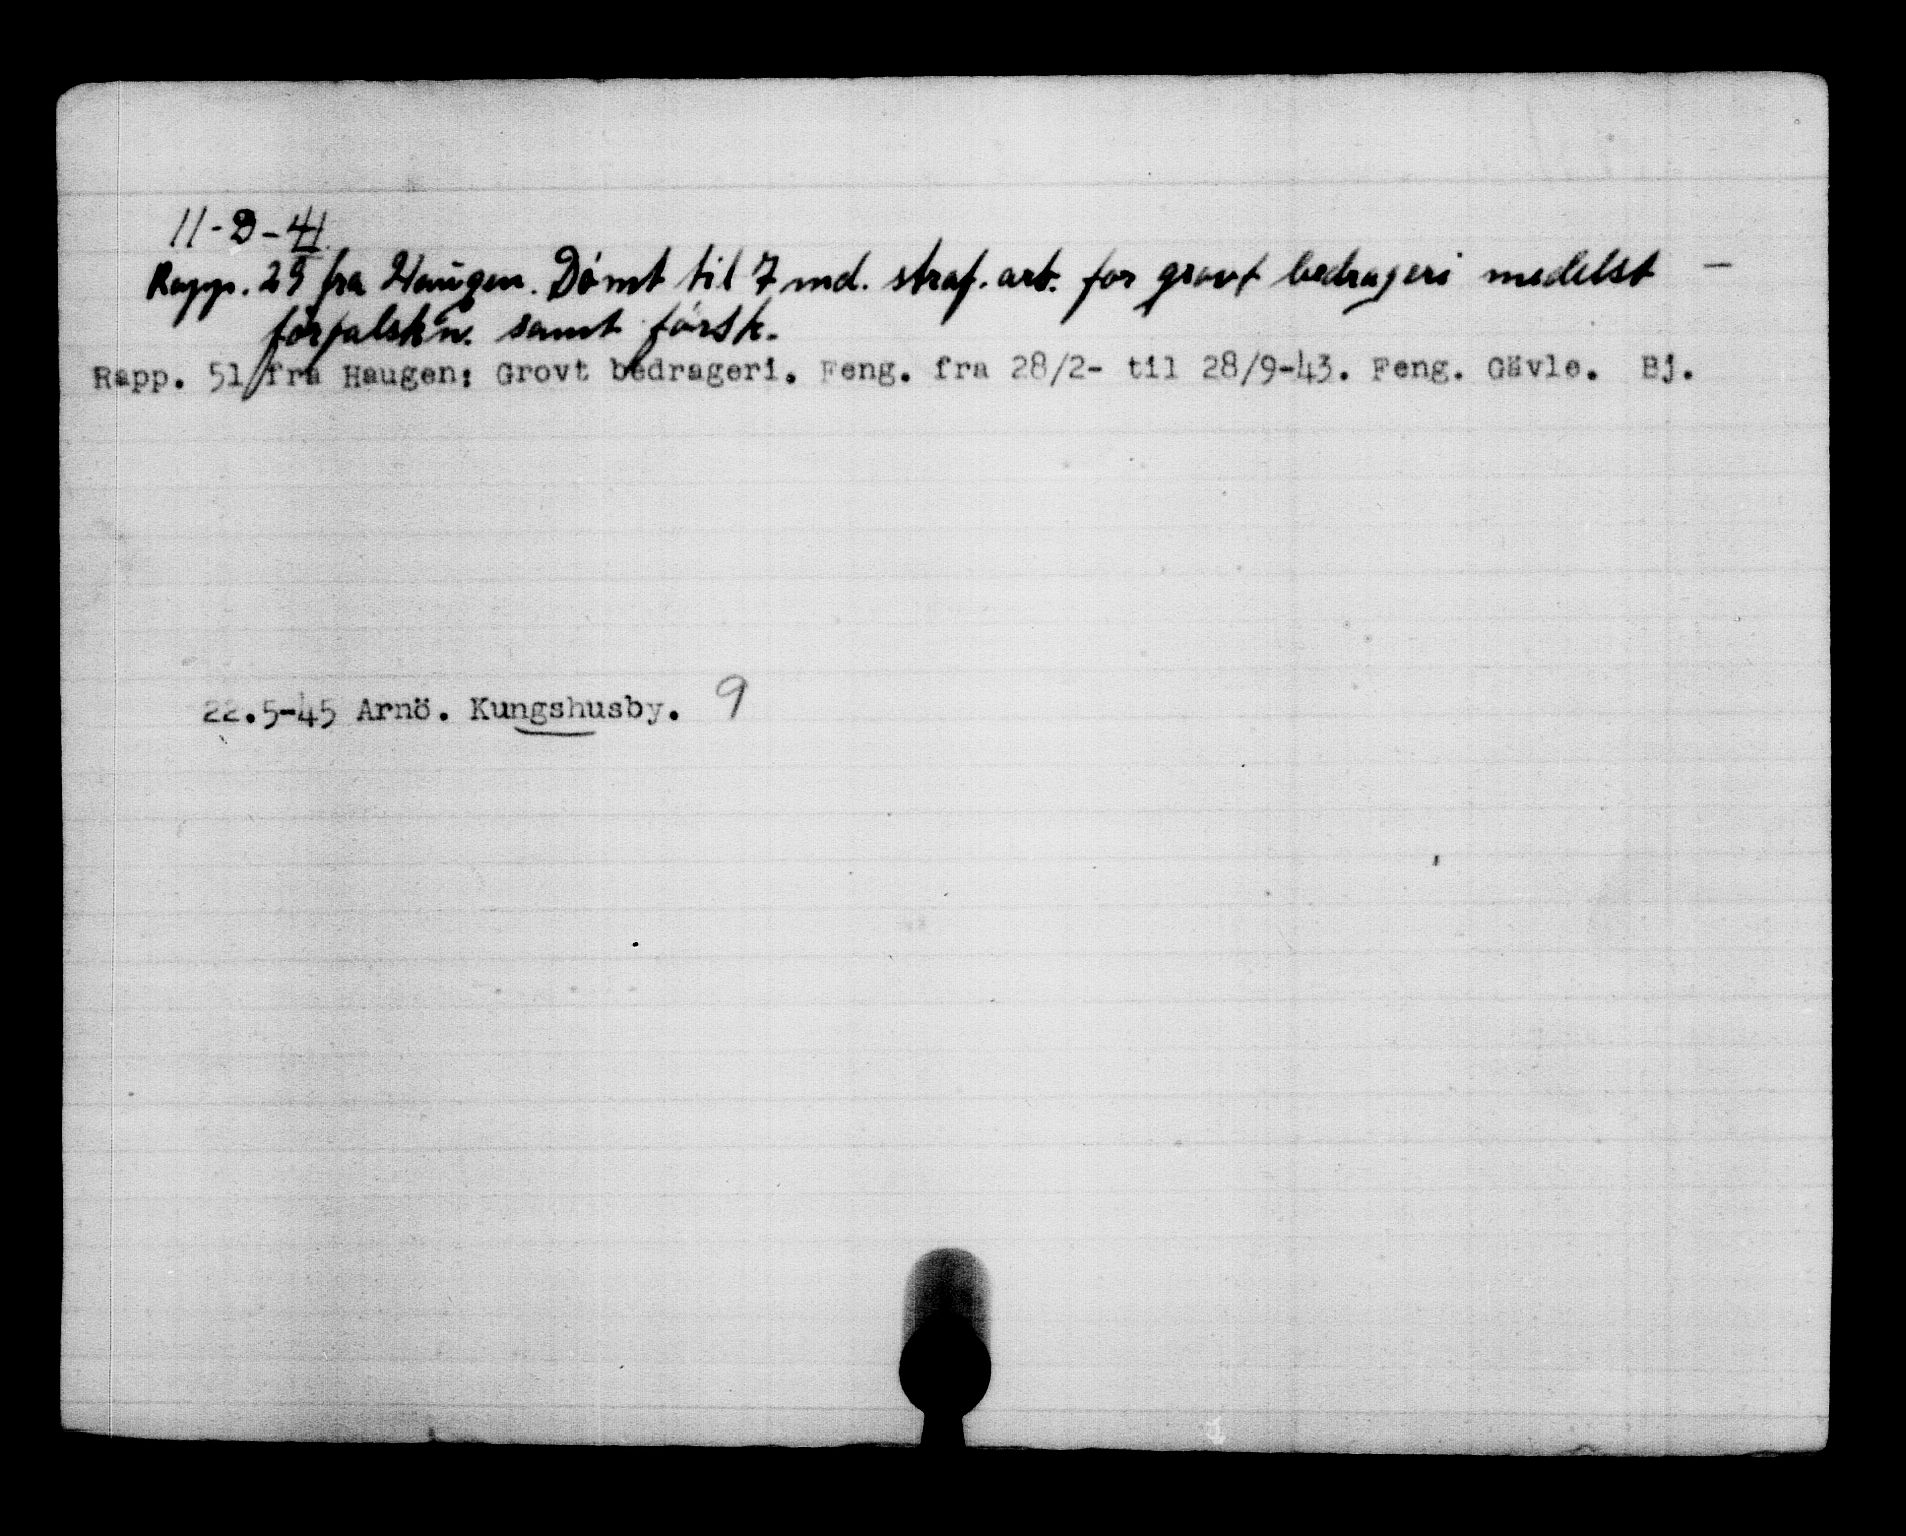 11-2-41.
Rapp. 29 fra Haugen. Dømt til 7 md. straf. arb. for grovt bedrageri medelst —
förfalskn. samt försk.
Rapp. 51 fra Haugen: Grovt bedrageri. Feng. fra 28/2- til 28/9-43. Feng. Gävle. Bj.
22.5-45 Arnö. Kungshusby. 9